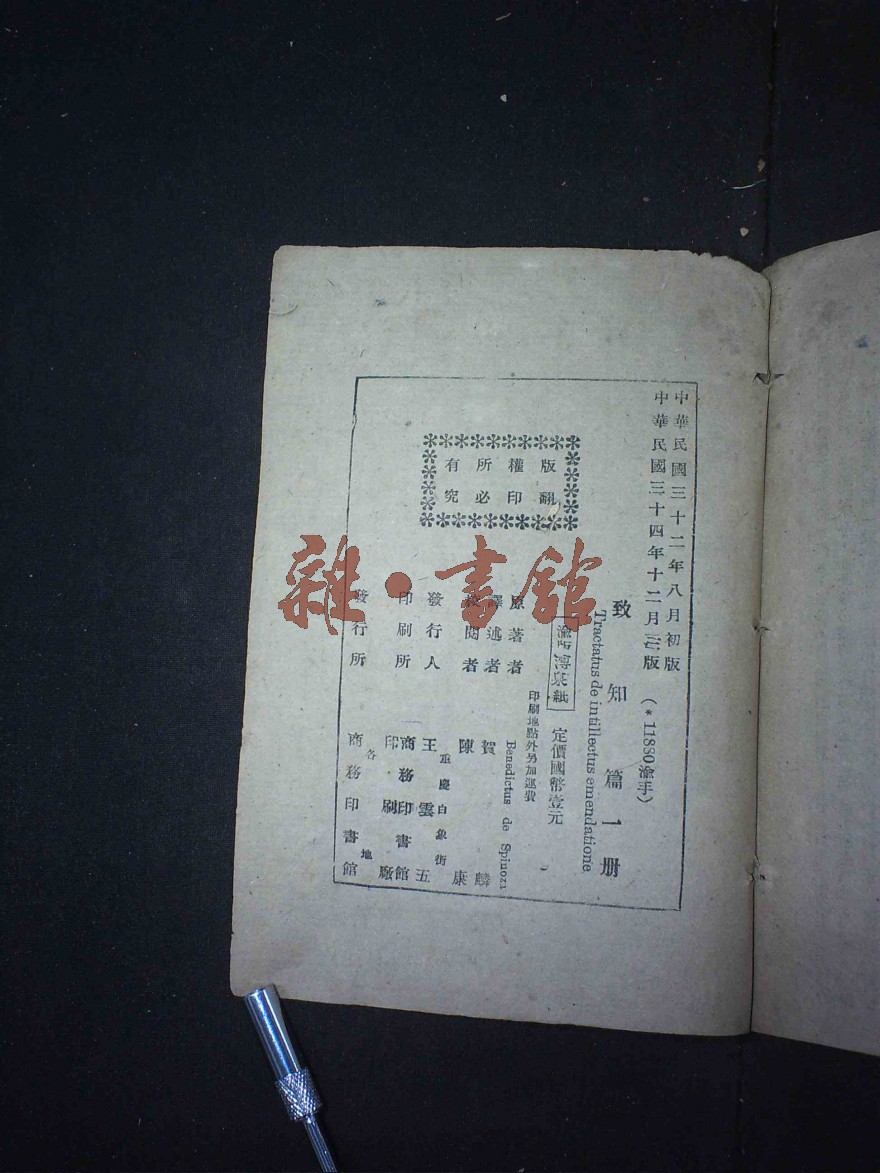 中華民國三十二年八月初版
中華民國三十四年十二月三版
(*11880渝手)
致知篇一册
Tractatus de intillectus emendatione
渝版 薄梨紙
定價國幣壹元
印刷地點外另加運費
原著者 Benedictus de Spinoza
譯述者 賀麟
校閱者 陳康
發行人 王雲五
重慶白象街
印刷所 商務印書館
印刷廠
發行所 商務印書館
各地
版權所有
翻印必究
雜·書館